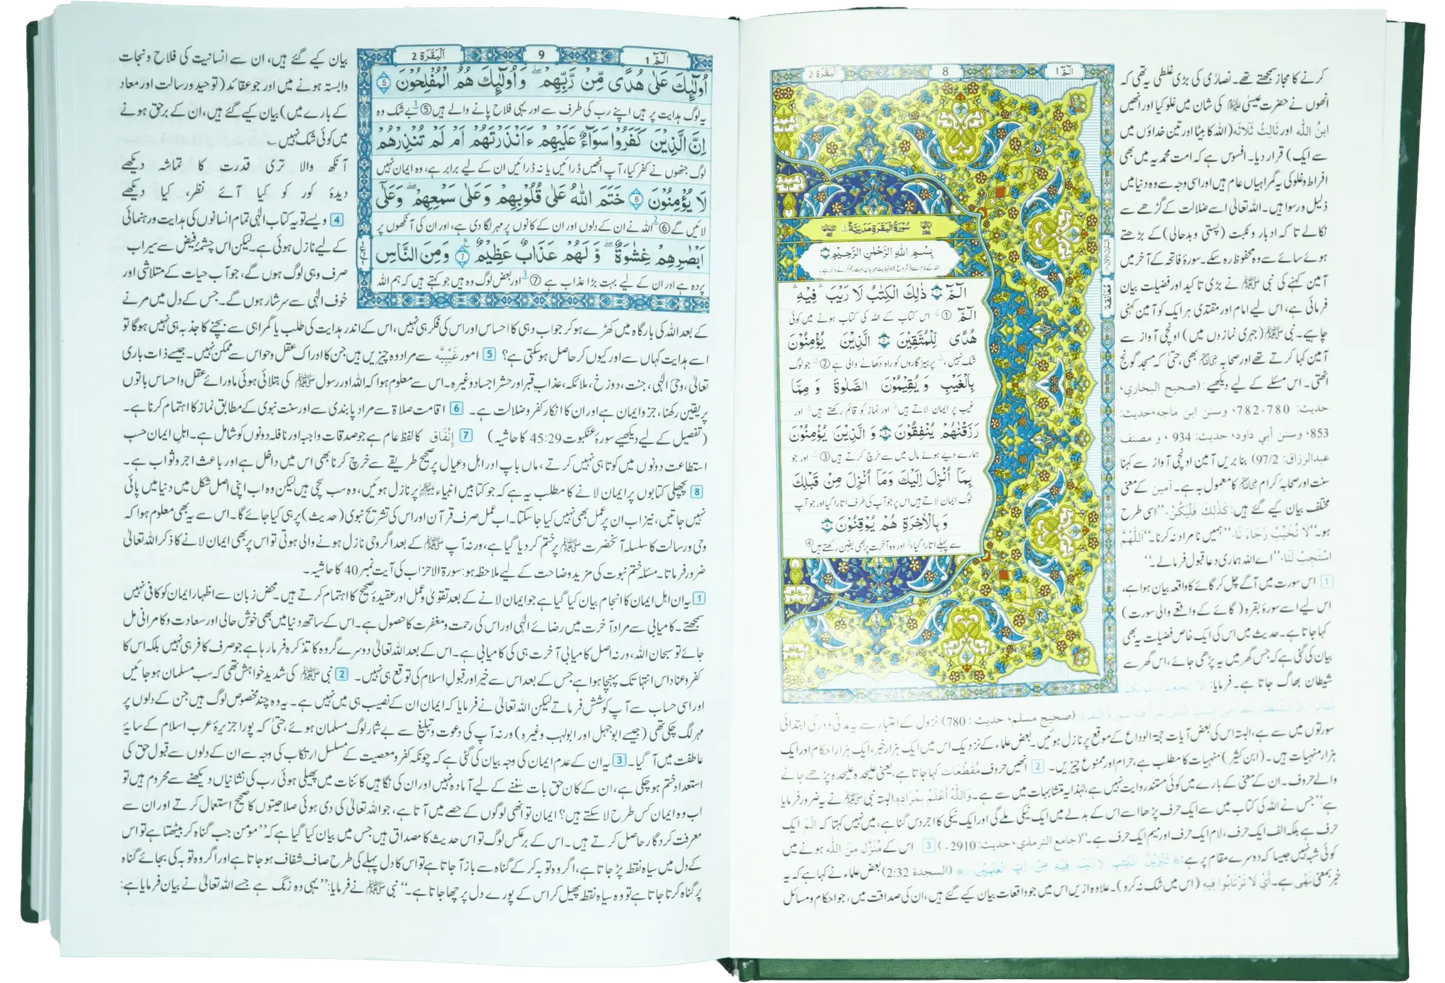 الٓمّٓ ١
8
البقرة ٢
سُوْرَةُ الْبَقَرَةِ مَدَنِيَّةٌ
بِسْمِ اللّٰهِ الرَّحْمٰنِ الرَّحِيْمِ
الٓمّٓ ۚ ذٰلِكَ الْكِتٰبُ لَا رَيْبَ ۛ فِيْهِ ۛ
الٓمّٓ ① اس کتاب کے اللہ کی کتاب ہونے میں کوئی
هُدًى لِّلْمُتَّقِيْنَ الَّذِيْنَ يُؤْمِنُوْنَ
شک نہیں، پرہیزگاروں کو راہ دکھانے والی ہے ② جو لوگ
بِالْغَيْبِ وَيُقِيْمُوْنَ الصَّلٰوةَ وَمِمَّا
غیب پر ایمان لاتے ہیں اور نماز کو قائم رکھتے ہیں اور
رَزَقْنٰهُمْ يُنْفِقُوْنَ وَالَّذِيْنَ يُؤْمِنُوْنَ
ہمارے دیے ہوئے مال میں سے خرچ کرتے ہیں ③ اور جو
بِمَآ اُنْزِلَ اِلَيْكَ وَمَآ اُنْزِلَ مِنْ قَبْلِكَ
لوگ ایمان لاتے ہیں اس پر جو آپ کی طرف اتارا گیا اور جو آپ
وَبِالْاٰخِرَةِ هُمْ يُوْقِنُوْنَ
سے پہلے اتارا گیا اور وہ آخرت پر بھی یقین رکھتے ہیں ④
کرنے کا مجاز سمجھتے تھے۔ نصاریٰ کی بڑی غلطی یہ تھی کہ
انھوں نے حضرت عیسیٰ کی شان میں غلو کیا اور انھیں
ابنُ اللّٰہ اور ثَالِثُ ثَلَاثَہ (اللہ کا بیٹا اور تین خداؤں میں
سے ایک) قرار دیا۔ افسوس ہے کہ امت محمدیہ میں بھی
افراط و غلو کی یہ گمراہیاں عام ہیں اور اسی وجہ سے وہ دنیا میں
ذلیل و رسوا ہیں۔ اللہ تعالیٰ اسے ضلالت کے گڑھے سے
نکالے تاکہ ادبار و نکبت (پستی و بدحالی) کے بڑھتے
ہوئے سائے سے وہ محفوظ رہ سکے۔ سورۂ فاتحہ کے آخر میں
آمین کہنے کی نبی ﷺ نے بڑی تاکید اور فضیلت بیان
فرمائی ہے، اس لیے امام اور مقتدی ہر ایک کو آمین کہنی
چاہیے۔ نبی ﷺ (جہری نمازوں میں) اونچی آواز سے
آمین کہا کرتے تھے اور صحابہ بھی، حتیٰ کہ مسجد گونج
اٹھتی۔ اس مسئلے کے لیے دیکھیے: (صحیح البخاري،
حدیث: 780-782، وسنن ابن ماجه، حدیث:
853، وسنن أبي داود، حدیث: 934، و مصنف
عبدالرزاق: 97/2) بنا بریں آمین اونچی آواز سے کہنا
سنت اور صحابہ کرام کا معمول بہ ہے۔ آمین کے معنی
مختلف بیان کیے گئے ہیں: كَذٰلِكَ فَلْيَكُنْ "اسی طرح
ہو"۔ لَا تُخَيِّبْ رَجَاءَنَا "ہمیں نامراد نہ کرنا"۔ اَللّٰهُمَّ
اسْتَجِبْ لَنَا "اے اللہ ہماری دعا قبول فرما لے"۔
1 اس سورت میں آگے چل کر گائے کا واقعہ بیان ہوا ہے،
اس لیے اسے سورۂ بقرہ (گائے کے واقعے والی سورت)
کہا جاتا ہے۔ حدیث میں اس کی ایک خاص فضیلت یہ بھی
بیان کی گئی ہے کہ جس گھر میں یہ پڑھی جائے، اس گھر سے
شیطان بھاگ جاتا ہے۔ فرمایا:
(صحيح مسلم، حديث: 780) نزول کے اعتبار سے یہ مدنی دور کی ابتدائی
سورتوں میں سے ہے، البتہ اس کی بعض آیات حجۃ الوداع کے موقع پر نازل ہوئیں۔ بعض علماء کے نزدیک اس میں ایک ہزار خبر، ایک ہزار احکام اور ایک
ہزار منہیات ہیں۔ (ابن کثیر) منہیات کا مطلب ہے، حرام اور ممنوع چیزیں۔ 2 انھیں حروف مُقَطَّعات کہا جاتا ہے، یعنی علیحدہ علیحدہ پڑھے جانے
والے حروف۔ ان کے معنی کے بارے میں کوئی مستند روایت نہیں ہے، لہٰذا یہ متشابہات میں سے ہے۔ وَاللّٰهُ أَعْلَمُ بِمُرَادِهِ البتہ نبی ﷺ نے یہ ضرور فرمایا
ہے "جس نے اللہ کی کتاب میں سے ایک حرف پڑھا اسے اس کے بدلے میں ایک نیکی ملے گی اور ایک نیکی کا اجر دس گنا ہے، میں نہیں کہتا کہ الٓمّٓ ایک
حرف ہے بلکہ الف ایک حرف، لام ایک حرف اور میم ایک حرف ہے۔" (جامع الترمذي، حديث: 2910) 3 اس کے مُنَزَّل مِنَ اللّٰہ ہونے میں
کوئی شبہ نہیں جیسا کہ دوسرے مقام پر ہے: تَنْزِيْلُ الْكِتٰبِ لَا رَيْبَ فِيْهِ مِنْ رَّبِّ الْعٰلَمِيْنَ (السجدة 2:32) بعض علماء نے کہا ہے کہ یہ
خبر بمعنی نہی ہے۔ أَيْ لَا تَرْتَابُوا فِيهِ (اس میں شک نہ کرو)۔ علاوہ ازیں اس میں جو واقعات بیان کیے گئے ہیں، ان کی صداقت میں، جو احکام و مسائل
الٓمّٓ ١
9
البقرة ٢
اُولٰٓئِكَ عَلٰى هُدًى مِّنْ رَّبِّهِمْ ۗ وَاُولٰٓئِكَ هُمُ الْمُفْلِحُوْنَ ⑤
یہ لوگ ہدایت پر ہیں اپنے رب کی طرف سے اور یہی فلاح پانے والے ہیں ⑤ 1 بے شک وہ
اِنَّ الَّذِيْنَ كَفَرُوْا سَوَآءٌ عَلَيْهِمْ ءَاَنْذَرْتَهُمْ اَمْ لَمْ تُنْذِرْهُمْ
لوگ جنھوں نے کفر کیا، آپ انھیں ڈرائیں یا نہ ڈرائیں ان کے لیے برابر ہے، وہ ایمان نہیں
لَا يُؤْمِنُوْنَ ⑥ خَتَمَ اللّٰهُ عَلٰى قُلُوْبِهِمْ وَعَلٰى سَمْعِهِمْ ۗ وَعَلٰٓى
لائیں گے ⑥ 2 اللہ نے ان کے دلوں اور ان کے کانوں پر مہر لگا دی ہے، اور ان کی آنکھوں پر
اَبْصَارِهِمْ غِشَاوَةٌ ۡ وَّلَهُمْ عَذَابٌ عَظِيْمٌ ⑦ وَمِنَ النَّاسِ
پردہ ہے اور ان کے لیے بہت بڑا عذاب ہے ⑦ 3 اور بعض لوگ وہ ہیں جو کہتے ہیں کہ ہم اللہ
بیان کیے گئے ہیں، ان سے انسانیت کی فلاح و نجات
وابستہ ہونے میں اور جو عقائد (توحید و رسالت اور معاد
کے بارے میں) بیان کیے گئے ہیں، ان کے برحق ہونے
میں کوئی شک نہیں۔
آنکھ والا تری قدرت کا تماشہ دیکھے
دیدۂ کور کو کیا آئے نظر، کیا دیکھے
4 ویسے تو یہ کتاب الٰہی تمام انسانوں کی ہدایت و رہنمائی
کے لیے نازل ہوئی ہے لیکن اس چشمۂ فیض سے سیراب
صرف وہی لوگ ہوں گے، جو آب حیات کے متلاشی اور
خوف الٰہی سے سرشار ہوں گے۔ جس کے دل میں مرنے
کے بعد اللہ کی بارگاہ میں کھڑے ہو کر جواب دہی کا احساس اور اس کی فکر ہی نہیں، اس کے اندر ہدایت کی طلب یا گمراہی سے بچنے کا جذبہ ہی نہیں ہوگا تو
اسے ہدایت کہاں سے اور کیوں کر حاصل ہو سکتی ہے؟ 5 امور غَیْبِیَّہ سے مراد وہ چیزیں ہیں جن کا ادراک عقل و حواس سے ممکن نہیں۔ جیسے ذات باری
تعالیٰ، وحیٔ الٰہی، جنت، دوزخ، ملائکہ، عذاب قبر اور حشر اجساد وغیرہ۔ اس سے معلوم ہوا کہ اللہ اور رسول ﷺ کی بتلائی ہوئی ماورائے عقل و احساس باتوں
پر یقین رکھنا، جزو ایمان ہے اور ان کا انکار کفر و ضلالت ہے۔ 6 اقامت صلاۃ سے مراد پابندی سے اور سنت نبوی کے مطابق نماز کا اہتمام کرنا ہے۔
(تفصیل کے لیے دیکھیے سورۂ عنکبوت 45:29 کا حاشیہ) 7 اِنْفَاق کا لفظ عام ہے جو صدقات واجبہ اور نافلہ دونوں کو شامل ہے۔ اہل ایمان حسب
استطاعت دونوں میں کوتاہی نہیں کرتے، ماں باپ اور اہل و عیال پر صحیح طریقے سے خرچ کرنا بھی اس میں داخل ہے اور باعث اجر و ثواب ہے۔
8 پچھلی کتابوں پر ایمان لانے کا مطلب یہ ہے کہ جو کتابیں انبیاء پر نازل ہوئیں، وہ سب سچی ہیں لیکن وہ اب اپنی اصل شکل میں دنیا میں پائی
نہیں جاتیں، نیز اب ان پر عمل بھی نہیں کیا جا سکتا۔ اب عمل صرف قرآن اور اس کی تشریح نبوی (حدیث) پر ہی کیا جائے گا۔ اس سے یہ بھی معلوم ہوا کہ
وحی و رسالت کا سلسلہ آنحضرت ﷺ پر ختم کر دیا گیا ہے، ورنہ آپ ﷺ کے بعد اگر وحی نازل ہونے والی ہوتی تو اس پر بھی ایمان لانے کا ذکر اللہ تعالیٰ
ضرور فرماتا۔ مسئلہ ختم نبوت کی مزید وضاحت کے لیے ملاحظہ ہو: سورۃ الاحزاب کی آیت نمبر 40 کا حاشیہ۔
1 یہ ان اہل ایمان کا انجام بیان کیا گیا ہے جو ایمان لانے کے بعد تقویٰ و عمل اور عقیدۂ صحیح کا اہتمام کرتے ہیں۔ محض زبان سے اظہار ایمان کو کافی نہیں
سمجھتے۔ کامیابی سے مراد آخرت میں رضائے الٰہی اور اس کی رحمت و مغفرت کا حصول ہے۔ اس کے ساتھ دنیا میں بھی خوش حالی اور سعادت و کامرانی مل
جائے تو سبحان اللہ، ورنہ اصل کامیابی آخرت ہی کی کامیابی ہے۔ اس کے بعد اللہ تعالیٰ دوسرے گروہ کا تذکرہ فرما رہا ہے جو صرف کافر ہی نہیں بلکہ اس کا
کفر و عناد اس انتہا تک پہنچا ہوا ہے جس کے بعد اس سے خیر اور قبول اسلام کی توقع ہی نہیں۔ 2 نبی ﷺ کی شدید خواہش تھی کہ سب مسلمان ہو جائیں
اور اسی حساب سے آپ کوشش فرماتے لیکن اللہ تعالیٰ نے فرمایا کہ ایمان ان کے نصیب ہی میں نہیں ہے۔ یہ وہ چند مخصوص لوگ ہیں جن کے دلوں پر
مہر لگ چکی تھی (جیسے ابوجہل اور ابولہب وغیرہ) ورنہ آپ کی دعوت و تبلیغ سے بے شمار لوگ مسلمان ہوئے، حتیٰ کہ پورا جزیرۂ عرب اسلام کے سایۂ
عاطفت میں آ گیا۔ 3 یہ ان کے عدم ایمان کی وجہ بیان کی گئی ہے کہ چونکہ کفر و معصیت کے مسلسل ارتکاب کی وجہ سے ان کے دلوں سے قبول حق کی
استعداد ختم ہو چکی ہے، ان کے کان حق بات سننے کے لیے آمادہ نہیں اور ان کی نگاہیں کائنات میں پھیلی ہوئی رب کی نشانیاں دیکھنے سے محروم ہیں تو
اب وہ ایمان کس طرح لا سکتے ہیں؟ ایمان تو انھی لوگوں کے حصے میں آتا ہے، جو اللہ تعالیٰ کی دی ہوئی صلاحیتوں کا صحیح استعمال کرتے اور ان سے
معرفت کردگار حاصل کرتے ہیں۔ اس کے برعکس لوگ تو اس حدیث کا مصداق ہیں جس میں بیان کیا گیا ہے کہ "مومن جب گناہ کر بیٹھتا ہے تو اس
کے دل میں سیاہ نقطہ پڑ جاتا ہے، اگر وہ توبہ کر کے گناہ سے باز آ جاتا ہے تو اس کا دل پہلے کی طرح صاف شفاف ہو جاتا ہے اور اگر وہ توبہ کی بجائے گناہ
پر گناہ کرتا جاتا ہے تو وہ سیاہ نقطہ پھیل کر اس کے پورے دل پر چھا جاتا ہے۔" نبی ﷺ نے فرمایا: "یہی وہ زنگ ہے جسے اللہ تعالیٰ نے بیان فرمایا ہے: